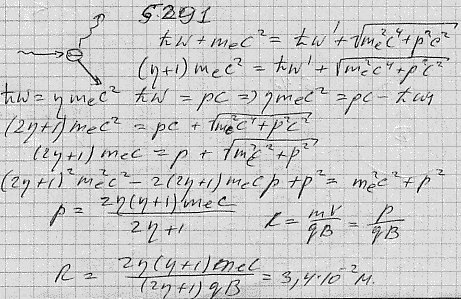 5.291
ħw + mₑc² = ħw' + √(mₑ²c⁴ + p²c²)
(η+1) mₑc² = ħw' + √(mₑ²c⁴ + p²c²)
ħw = η mₑc² ħw = pc => η mₑc² = pc - ħw'
(2η+1) mₑc² = pc + √(mₑ²c⁴ + p²c²)
(2η+1) mₑc = p + √(mₑ²c² + p²)
(2η+1)² mₑ²c² - 2(2η+1) mₑc p + p² = mₑ²c² + p²
p = 2η(η+1) mₑc / (2η+1) R = mV/qB = p/qB
R = 2η(η+1) mₑc / (2η+1) qB = 3,4·10⁻² м.